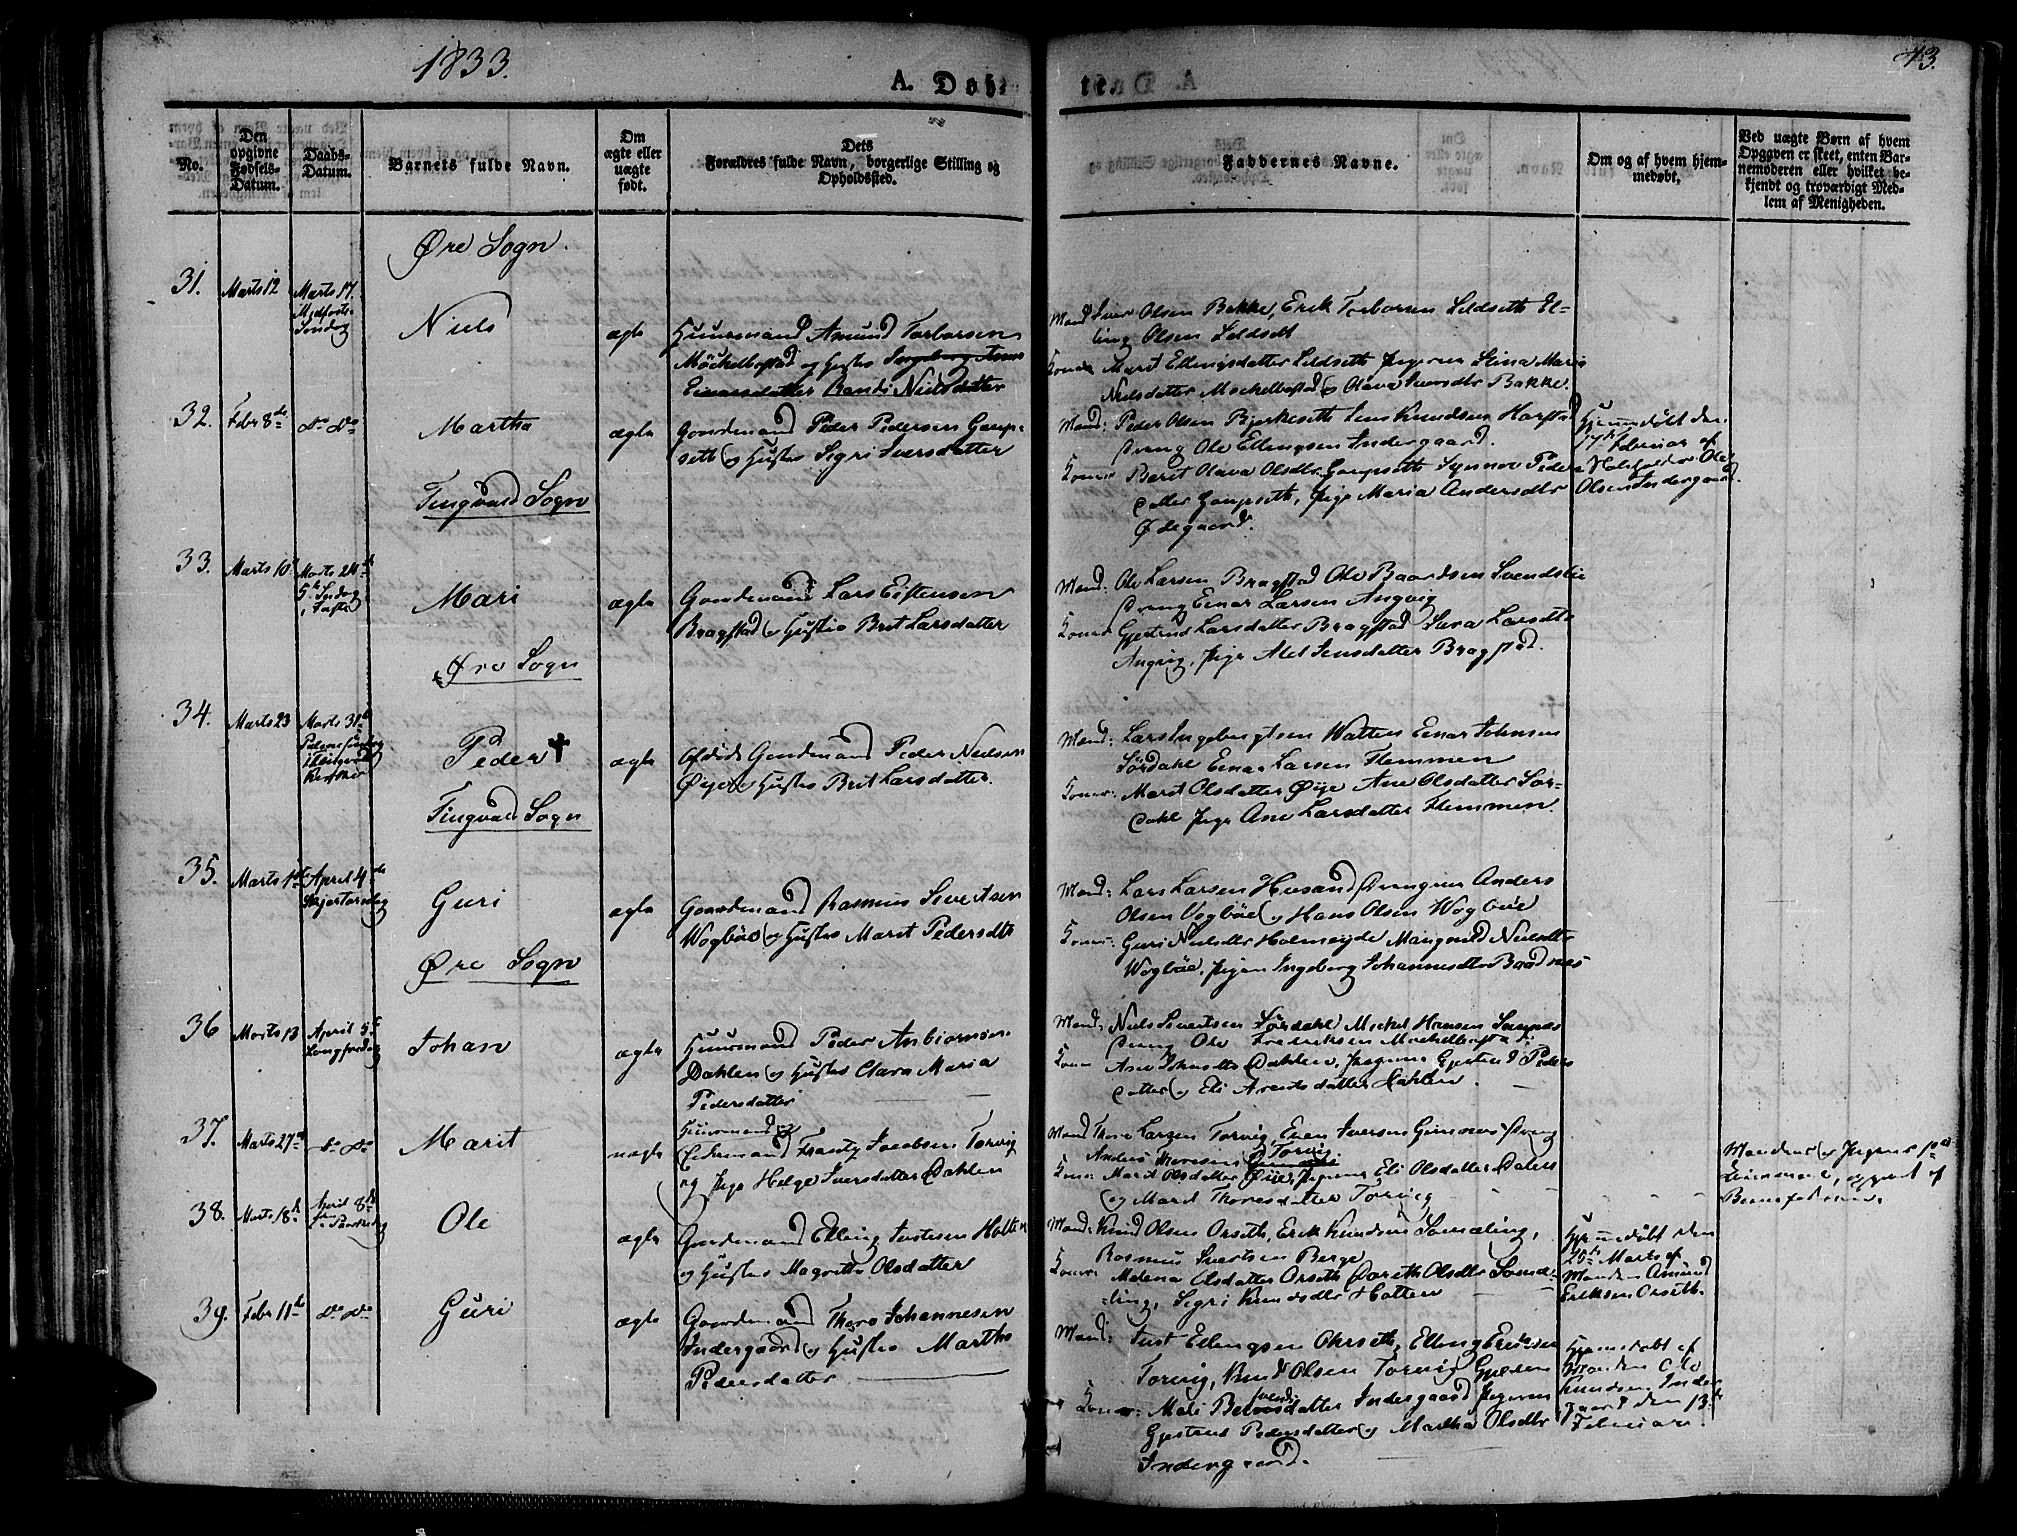 1833.
43.
A. Døbte
No.
Den opgivne Fødsels-Datum.
Daabs-Datum.
Barnets fulde Navn.
Om ægte eller uægte født.
Dets Forældres fulde Navn, borgerlige Stilling og Opholdssted.
Faddernes Navne.
Om og af hvem hjemmedøbt.
Ved uægte Børn af hvem Opgoven er skeet, enten Barnemoderen eller hvilket bekjendt og troværdigt Medlem af Menigheden.
Øre Sogn.
31. Marts 12
Marts 17.
Midfaste
Søndag
Niels
ægte
Huusmand Amund Torborsen
Möckelbostad og Hustro Ingeborg Anne
Einarsdatter Randi Nielsdatter
Mand: Iver Olsen Bakke, Erik Torborsen Sildseth El-
ling Olsen Sildset
Koner Marit Ellingsdatter Sildseth Pigerne Stina Maria
Nielsdatter Mockelbostad og Olava Iversdtr Bakke.
32. Febr 8de
do do
Martha
ægte
Gaardmand Peder Pedersen Gaup-
seth og Hustro Sigri Iversdatter
Mænd: Peder Olsen Bjerkeseth Jens Knudsen Harstad
Dreng Ole Ellingsen Indergaard.
Koner Berit Olava Olsdtr Gaupseth Synnov Peders
datter Gaupseth, Pige Maria Andersdtr
Ødegaard.
Hjemmedøbt den
17de Februar af
Ole
Olsen Indergaard.
Tingvold Sogn
33. Marts 10
Marts 24de
5te Søndag
i Faste
Mari
ægte
Gaardmand Lars Estensen
Bragstad og Hustro Brit Larsdatter
Mænd: Ole Larsen Bragstad Ole Baardsen Svendsli
Dreng Einar Larsen Angvig
Koner Gjertrud Larsdatter Bragstad Sara Larsdtr
Angvig, Pige Alet Jensdatter Bragstad.
Øre Sogn
34. Marts 23
Marts 31te
Palmesøndag
i Tingvold
Kirke
Peder †
ægte
Afdøde Gaardmand Peder Nielsen
Øye og Hustro Brit Larsdatter.
Mænd: Lars Ingebrigtsen Watten Einar Johnsen
Sördahl Einar Larsen Flemmen
Koner: Marit Olsdatter Øye Ane Olsdatter Sör-
dahl Pige Ane Larsdatter Flemmen.
Tingvold Sogn
35. Marts
April 4de
Skjertorsdag
Guri
ægte
Gaardmand Rasmus Sivertsen
Wogböe og Hustro Marit Pedersdtr
Mænd: Lars Larsen Husand Drengene Anders
Olsen Vogböe og Hans Olsen Wogböe
Koner: Guri Nielsdtr Holmeyde Mangnild Nielsdtr
Wogböe, Pigen Ingeborg Johannesdtr Baadnes
Øre Sogn
36 Marts 13
April 5te
Langfredag
Johan
ægte
Huusmand Peder Anbiørnsen
Dahlen og Hustro Clara Maria
Pedersdatter
Mænd: Niels Sivertsen Sördahl Mickel Hansen
Dreng Ole Fredriksen Möckelbostad
Koner Ane Johnsdtr Dahlen, Pigerne Gjertrud Peders
datter og Eli Arentsdatter Dahlen.
37. Marts 27de
do do
Marit
uægte
Huusmand og
Enkemand Frantz Jacobsen Torvig
og Pige Helge Iversdatter Dahlen
Mænd Thore Larsen Torvig, Even Iversen Gimnes Dreng
Anders Thoresen Torvig
Koner Marit Olsdatter Øye, Pigerne Eli Olsdatter Dalen
og Marit Thoresdatter Torvig
38. Marts 18de
April 8de
2den Paaskedag
Ole
ægte
Gaardmand Elling Justesen Holten
og Hustro Magrette Olsdatter
Mænd: Knud Olsen Orseth, Erik Knudsen Sandeling,
Rasmus Ivertsen Berge
Koner: Malena Olsdatter Orseth Dorith Olsdtr Sande-
ling, Sigri Knudsdtr Holten
Hjemmedøbt den
25de Marts af
Manden Amund
Eriksen Orseth.
39. Febr 11te
do do
Guri
ægte
Gaardmand Thore Johannesen
Indergaard og Hustro Martha
Pedersdatter
Mænd: Just Ellingsen Ohrseth, Elling Ericksen
Torvig, Knud Olsen Torvig
Koner: Mali Indergaard Pigerne
Gjertrud Pedersdatter og Martha Olsdtr
Indergaard.
Hjemmedøbt af
Manden Ole
Knudsen Inder
gaard den 13de
Februar.